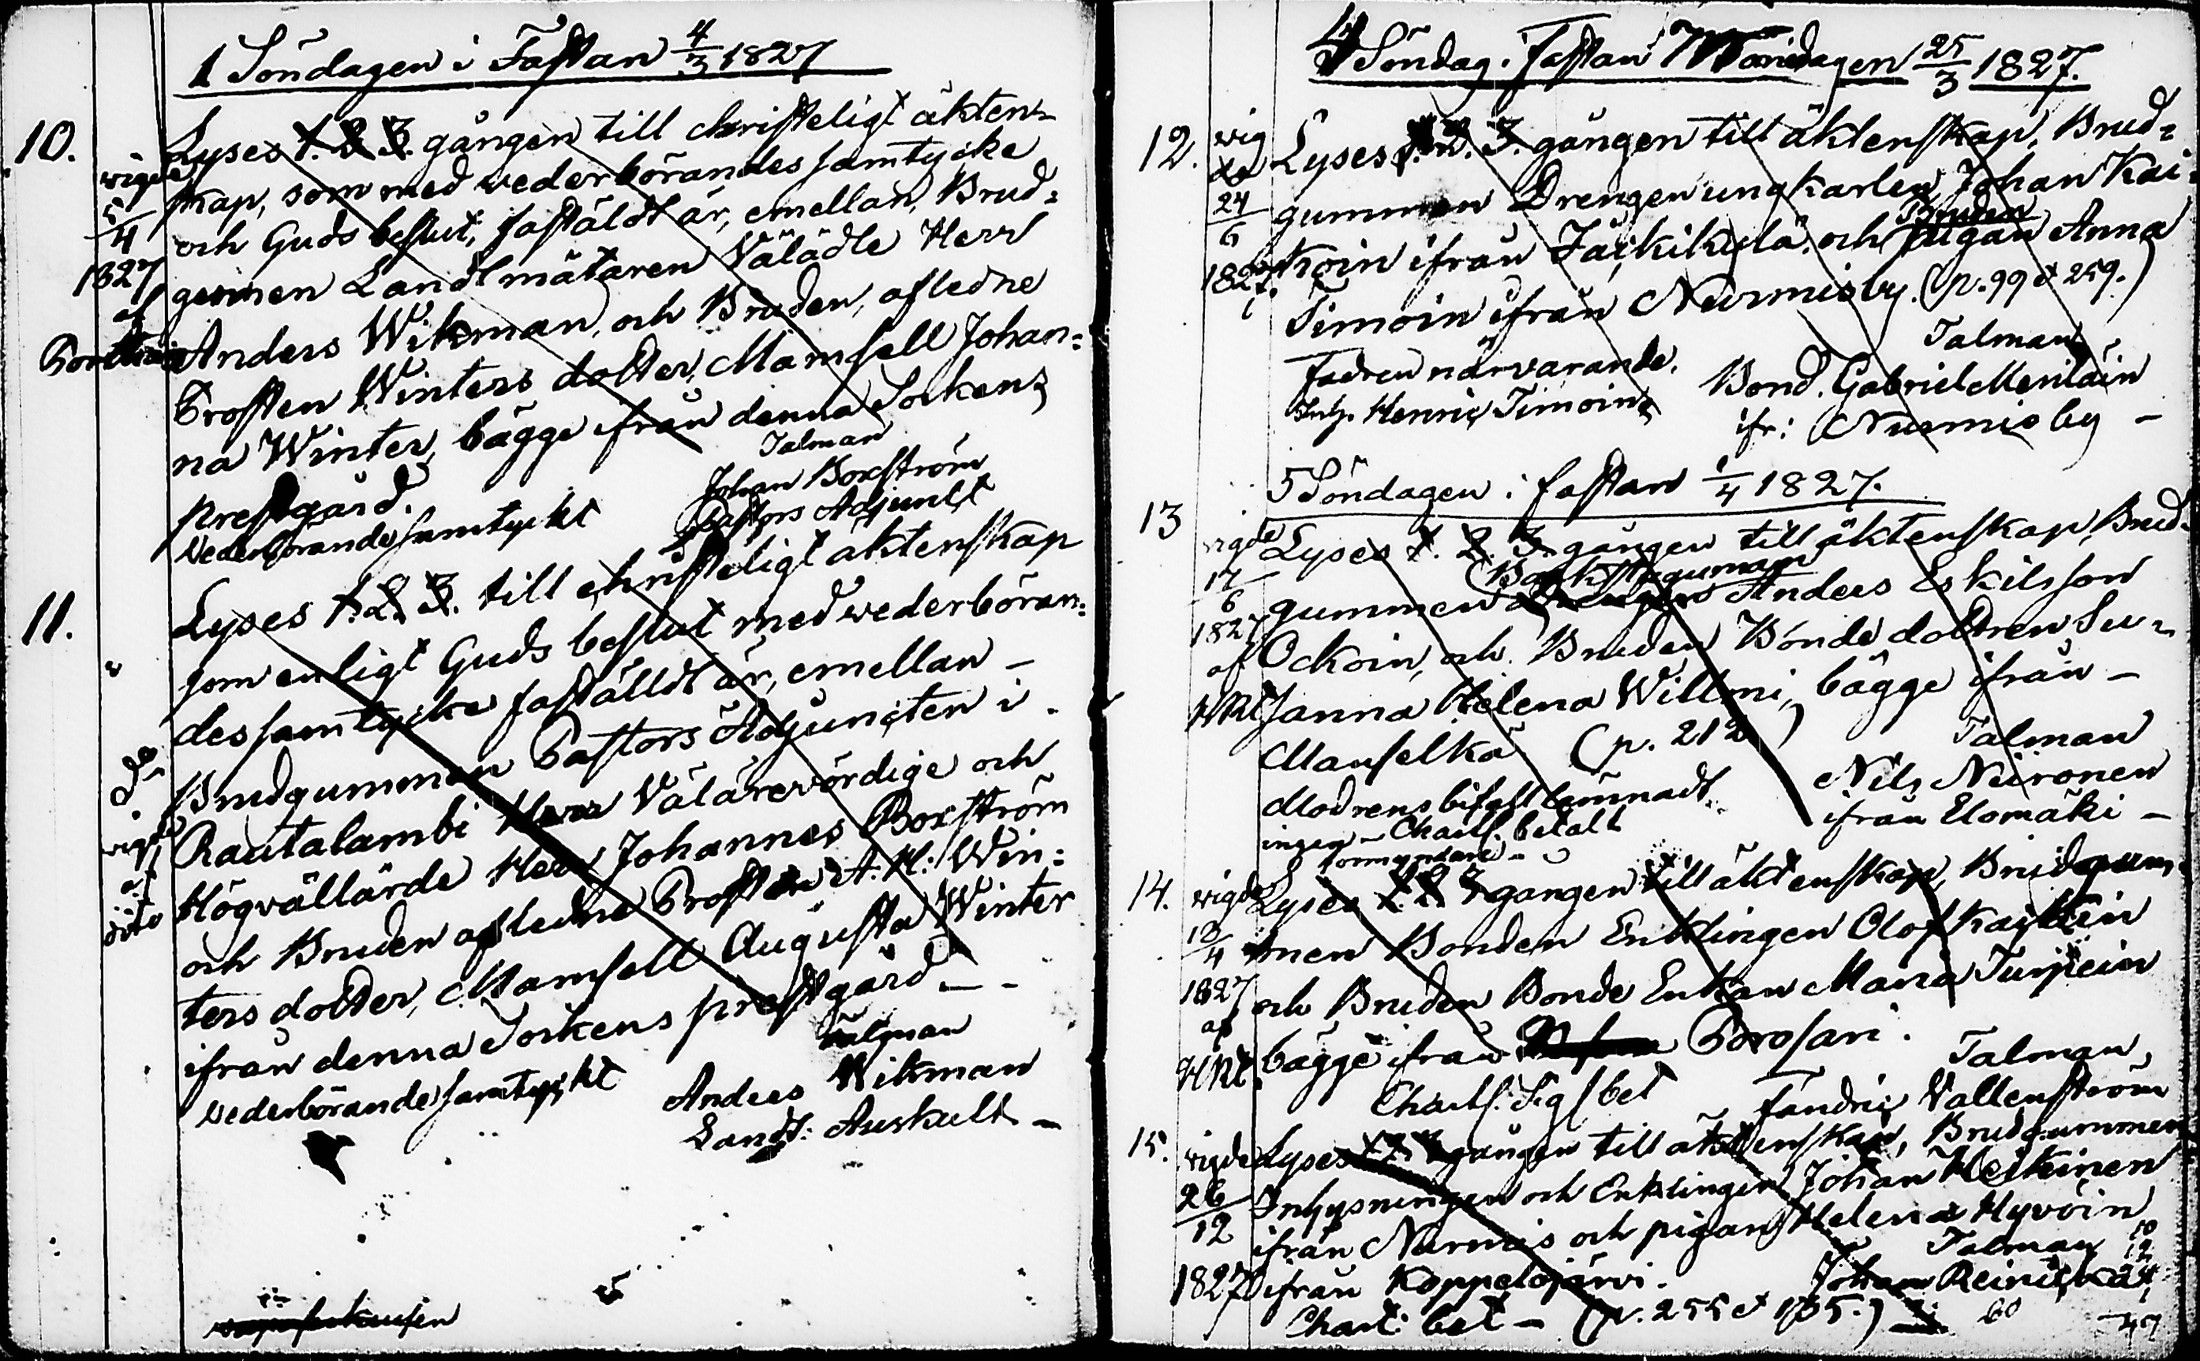 1 Söndagen i Fastan 4/3 1827
10.
vigde
5/4
1827
af
Lyses 1. 2. 3. gången till christeligt äkten-
skap, som med vederbörandes samtycke
och Guds beslut, fastäldt är, emellan, Brud=
gummen Landtmätaren Välädle Herr
Anders Wikman, och Bruden, afledne
Prosten Winters dotter, Mamsell Johan=
na Winter, bägge ifrån denna Sockens
prestgård.
Vederbörande samtyckt
Talman
Johan Boxström
Pastors Adjunct
11.
do
vigt
af
dito
Lyses 1. 2. 3. till christeligt äktenskap
som enligt Guds beslut med vederböran=
des samtycke faställdt är, emellan –
Brudgummen Pastors Adjuncten i
Rautalambi Herr Välärevördige och
Högvällärde Herr Johannes Boxström
och Bruden afledne Prosten A. H. Win=
ters dotter, Mamsell Augusta Winter
ifrån denna Sockens prestgård –
Vederbörande samtyckt
Talman
Anders Wikman
Landt: Auskult –
4 Söndag. i Fastan Mariædagen 25/3 1827.
12.
vig
de
24/6
1827.
Lyses 1. 2. 3. gången till äktenskap, Brud=
gummen Drengen ungkarlen Johan Kai=
koin ifrån Jäskikylä, och Bruden pigan Anna
Timoin ifrån Nurmisby. (p. 99 et 259.)
Fadren närvarande.
Inh. Henric Timoin
Talman
Bond. Gabriel Meriläin
ifr: Nurmisby –
5 Söndagen i fastan 1/4 1827.
13
vigde
17/6
1827
af
Lyses 1. 2. 3. gången till äktenskap, Brud-
gummen Anders Eskilsson
Ockoin, och Bruden Bonde dottren Su-
sanna Helena Willmi, bägge ifrån –
Manselkä (p. 212)
Modrens bifall lemnadt
ingen – Charts. betalt
förmyndare –
Talman
Nils Niironen
ifrån Elomäki –
14.
vigde
1827
af
Lyses 1 2 3 gangen till äktenskap, Brudgum-
men Bonden Enklingen Olof
och Bruden Bonde Enkan Maria Turpein
bägge ifrån Porosari.
Charts. Sigs bet
Talman,
Fändric Vallenström
15.
vigde
26/12
1827
Lyses 1 2 3 gången till äktenskap, Brudgummen
Inhysningen och Enklingen Johan Heikinen
ifrån Nurmis och pigan Helena Hyvöin
ifrån Koppelojärvi.
Chart. bet – (p. 255 et 105.)
Talman
Johan Reinickä